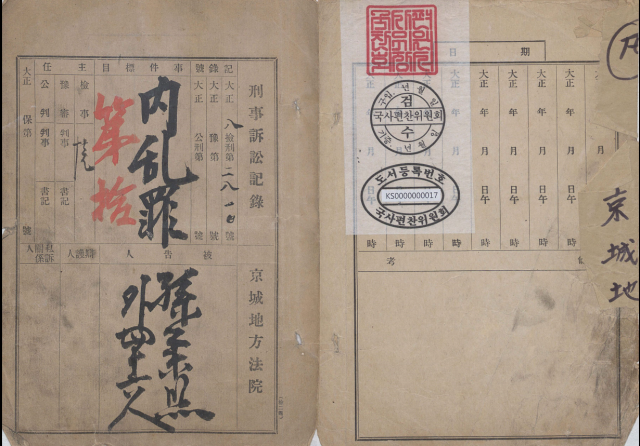 刑事訴訟記錄
京城地方法院
記錄號
大正八檢刑第二八一七號
大正 豫第 號
大正 公刑第 號
事件標目
內乱罪
第拾
主任
檢事
豫審判事
公判判事
書記
書記
大正 保第 號
被告人
孫秉熙
外四十六人
辯護人
私訴關係人
期日
大正 年 月 日午 時
大正 年 月 日午 時
大正 年 月 日午 時
大正 年 月 日午 時
大正 年 月 日午 時
備考
구입 년 월 일
검수
국사편찬위원회
기증 년 월 일
도서등록번호
KS0000000017
국사편찬위원회
京城地